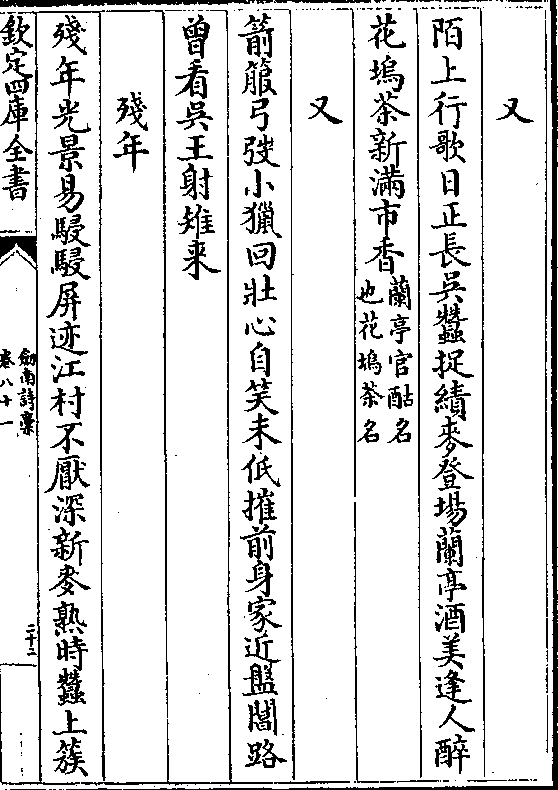 又
陌上行歌日正長吳蠶捉績麥登場蘭亭酒美逢人醉
花塢茶新滿市香蘭亭官酤名
也花塢茶名
又
箭箙弓弢小獵回壯心自笑未低摧前身家近盤閶路
曾看吳王射雉来
殘年
殘年光景易駸駸屏迹江村不厭深新麥熟時蠶上簇
欽定四庫全書
劍南詩稾
卷八十一
二十二